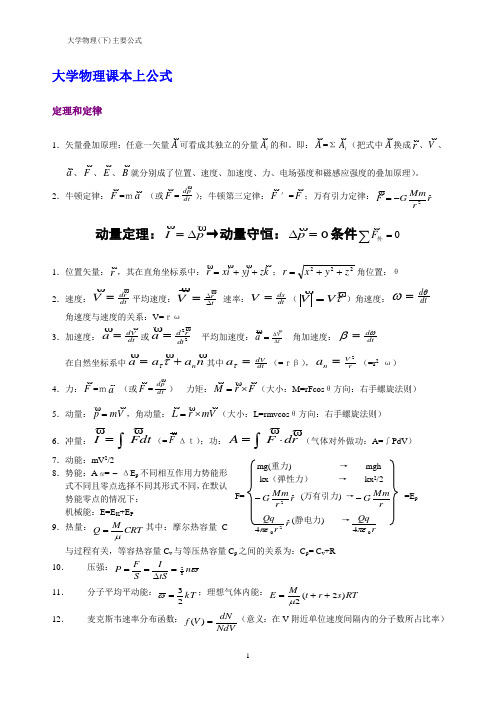 大学物理(下)主要公式
大学物理课本上公式
定理和定律
1．矢量叠加原理：任意一矢量A可看成其独立的分量A_i的和。即：A=ΣA_i（把式中A换成r、V、
a、F、E、B就分别成了位置、速度、加速度、力、电场强度和磁感应强度的叠加原理）。
2．牛顿定律：F=m a （或F=dp/dt）；牛顿第三定律：F′=F；万有引力定律：F=−G Mm/r² r̂
动量定理：I=Δp→动量守恒：Δp=0条件∑F外=0
1．位置矢量：r，其在直角坐标系中：r=xi+yj+zk；r=√(x²+y²+z²)角位置：θ
2．速度：V=dr/dt平均速度：V=Δr/Δt 速率：V=ds/dt（V=Vτ）角速度：ω=dθ/dt
角速度与速度的关系：V=rω
3．加速度：a=dV/dt或a=d²r/dt² 平均加速度：a=ΔV/Δt 角加速度：β=dω/dt
在自然坐标系中a=a_τ τ+a_n n其中a_τ=dV/dt（=rβ），a_n=V²/r（=r² ω）
4．力：F=m a （或F=dp/dt） 力矩：M=r×F（大小：M=rFcosθ方向：右手螺旋法则）
5．动量：p=mV，角动量：L=r×mV（大小：L=rmvcosθ方向：右手螺旋法则）
6．冲量：I=∫Fdt（=FΔt）；功：A=∫F·dr（气体对外做功：A=∫PdV）
7．动能：mV²/2
8．势能：A保= – ΔE_p不同相互作用力势能形
式不同且零点选择不同其形式不同，在默认
势能零点的情况下：
机械能：E=E_K+E_P
F=
mg(重力) → mgh
-kx（弹性力） → kx²/2
−G Mm/r² r̂ (万有引力) → −G Mm/r =E_p
Qq/4πε₀r² r̂ (静电力) → Qq/4πε₀r
9．热量：Q=M/μ CRT其中：摩尔热容量C
与过程有关，等容热容量C_v与等压热容量C_p之间的关系为：C_p= C_v+R
10． 压强：P=F/S=I/ΔtS=2/3 nω
11． 分子平均平动能：ω=3/2 kT；理想气体内能：E=M/μ2 (t+r+2s)RT
12． 麦克斯韦速率分布函数：f(V)=dN/NdV（意义：在V附近单位速度间隔内的分子数所占比率）
1